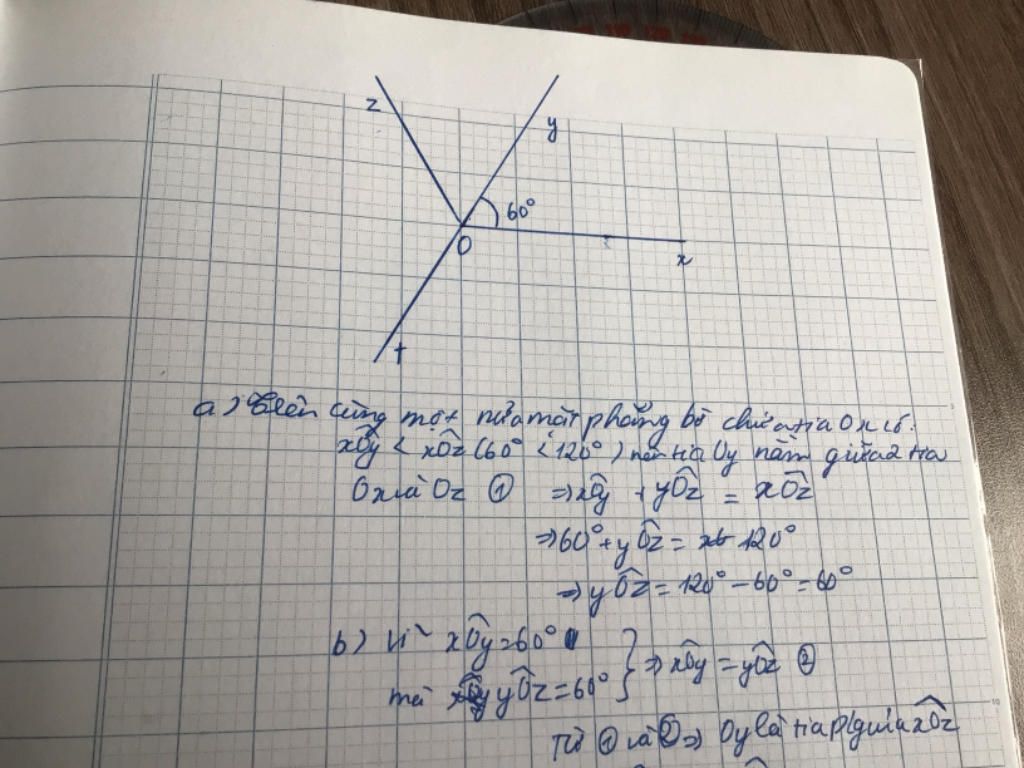 z
y
60°
O
x
t
a) Trên cùng một nửa mặt phẳng bờ chứa tia Ox có:
xÔy < xÔz (60° < 120°) nên tia Oy nằm giữa 2 tia
Ox và Oz ① ⇒ xÔy + yÔz = xÔz
⇒ 60° + yÔz = 120°
⇒ yÔz = 120° – 60° = 60°
b) Vì xÔy = 60°
mà yÔz = 60° } ⇒ xÔy = yÔz ②
Từ ① và ② ⇒ Oy là tia p/giác xÔz